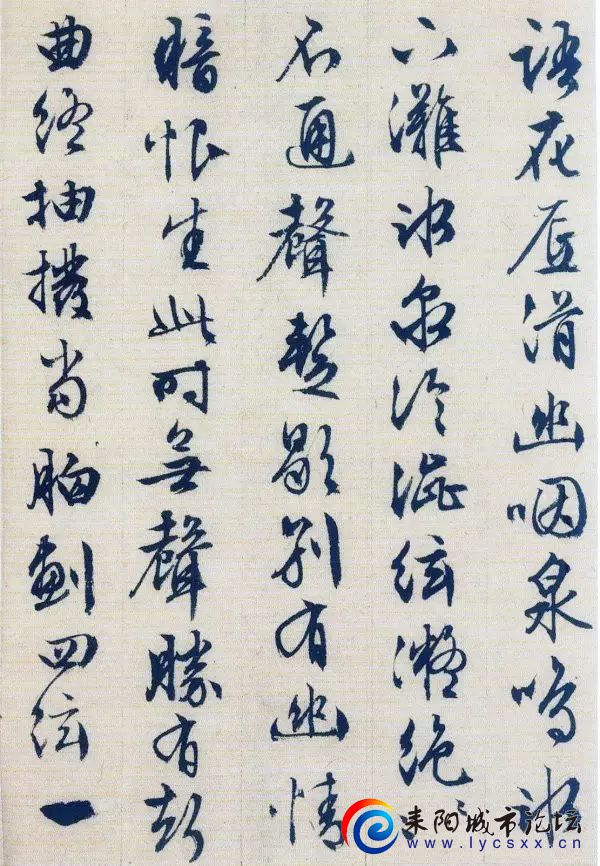 語花底滑幽咽泉鳴冰
下灘冰泉冷澀絃凝絕
不通聲暫歇別有幽情
暗恨生此時無聲勝有聲
曲終抽撥當胸劃四絃一
耒阳城市论坛
www.lycsxx.cn